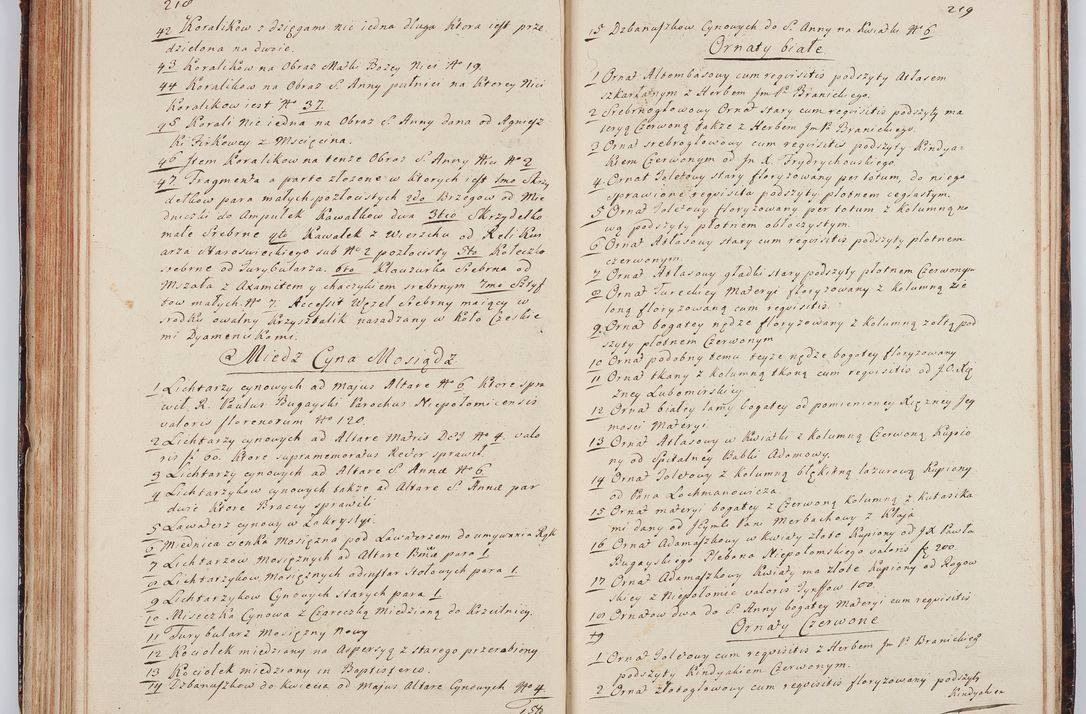 218
42 Koralikow z dzięgami nić iedna długa ktora iest prze
dzielona na dwoie.
43 Koralikow na Obraz Matki Bozey Nici No 19.
44 Koralikow na Obraz S. Anny pułnici na ktorey Nici
Koralikow iest No 37.
45 Korali nić iedna na Obraz S. Anny dana od Agniesz
ki Firkowey z Mscięcina.
46 Item Koralikow na tenże Obraz S. Anny No 2
47 Fragmenta a parte złozone w ktorych iest 1mo Skrzy
dełkow para małych pozłocistych 2do Brzegow od Mie
dniczki do Ampułek Kawałkow dwa 3tio Skrzydełko
małe Srebrne 4to Kawałek z Wierzchu od Reli kwi
arza Starowieckiego sub No 2 pozłocisty 5to Kołeczko
srebrne od Turybularza. 6to Klauzurka Srebrna od
Mszała z Axamitem y chaczykiem srebrnym 7mo Sztyf
tow małych No 7. Accessit Węzeł Srebrny maiący w
srodku owalny Krzysztalik nasadzany w koło Czeskie
mi Dyamencikami.
Miedz Cyna Mosiądz
1 Lichtarzy cynowych ad Majus Altare No 6 ktore spra
wił R. Paulus Bugayski Parochus Niepołomicensis
valoris florenorum No 120.
2 Lichtarzy cynowych ad Altare Matris Dei No 4. valo
ris f. 60. ktore supramemoratus Rever sprawił.
3 Lichtarzy cynowych ad Altare S. Annæ No 6
4 Lichtarzykow cynowych także ad Altare S. Annæ par
dwie ktore Braccy sprawili
5 Lawaterz cynowy w Zakrystyi.
6 Miednica cienka Mosięzna pod Lawaterzem do umywania Rąk
7 Lichtarzow Mosięznych ad Altare Bmæ para 1
8 Lichtarzykow Mosięznych ad instar Stołowych para 1.
9 Lichtarzykow Cynowych Starych para 1
10 Miseczka Cynowa z Czareczką Miedzianą do Krzcilnicy.
11 Turybularz Mosięzny Nowy
12 Kociołek miedziany na Aspersyą z starego przerabiony
13 Kociołek miedziany in Baptisterio.
14 Dzbanuszkow do kwiecia ad Majus Altare Cynowych No 4.
15ty
219
15 Dzbanuszkow Cynowych do S. Anny na kwiatki No 6
Ornaty białe
1 Ornat Altembasowy cum requisitis podszyty Atłasem
szkarłatnym z Herbem Jm P. Branickiego.
2 Srebrnogłowowy Ornat stary cum requisitis podszyty ma
teryą Czerwoną także z Herbem Jm P. Branickiego.
3 Ornat srebrogłowowy cum requisitis podszyty Kindya
kiem Czerwonym od Jm X. Frydrychowskiego.
4 Ornat Toletowy stary floryzowany per totum, do niego
sprawione requisita podszyty płotnem ceglastym.
5 Ornat Toletowy floryzowany per totum z Kolumną no
wą podszyty płotnem obłoczystym.
6 Ornat Atłasowy stary cum requisitis podszyty płotnem
czerwonym.
7 Ornat Atłasowy gładki stary podszyty płotnem Czerwonym
8 Ornat Tureckiey Materyi floryzowany z Kolumną zie
loną floryzowaną cum requisitis.
9 Ornat bogatey nędze floryzowany z Kolumną zołtą pod
szyty płotnem Czerwonym
10 Ornat podobny temu teyże nędze bogatey floryzowany
11 Ornat tkany z Kolumną tkaną cum requisitis od J.O. Xię
zney Lubomirskiey
12 Ornat białey lamy bogatey od pomienioney Xięzney Jey
mosci Materyi
13 Ornat Atłasowy w Kwiatki z Kolumną Czerwoną Kupio
ny od Spitalney Babki Adamowy.
14 Ornat Toletowy z Kolumną błękitną lazurową Kupiony
od Pana Lochmanowicza.
15 Ornat materyi bogatey z Czerwoną Kolumną z Kutasika
mi dany od Jeymć Pani Merbachowy z Kłaja
16 Ornat Adamaszkowy w kwiaty złote Kupiony od JX Pawła
Bugayskiego Plebana Niepołomskiego valoris f. 200.
17 Ornat Adamaszkowy Kwiaty ma złote Kupiony od Rogow
skiey z Niepołomic valoris Tynffow 100
18 Ornatow dwa do S. Anny bogatey Materyi cum requisitis
19
Ornaty Czerwone
1 Ornat Toletowy cum requisitis z Herbem Jm P. Branickieg
podszyty Kindyakiem Czerwonym.
2 Ornat złotogłowowy cum requisitis floryzowany podszyty
Kindyakiem